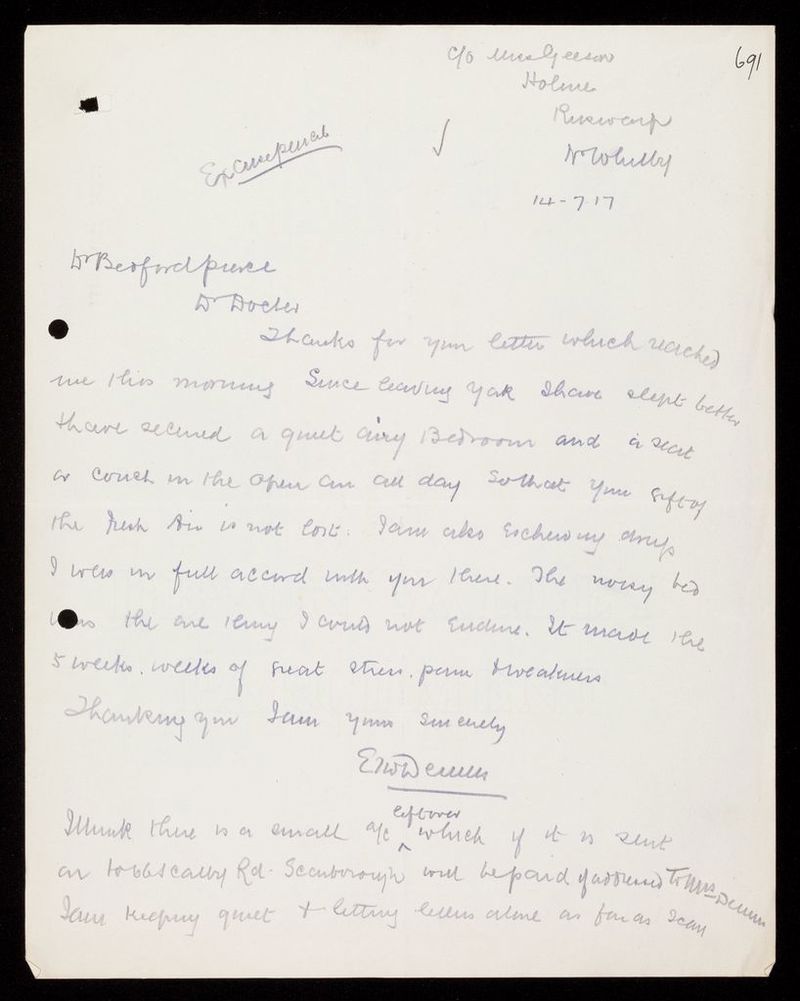 691
c/o Mrs Geeson
Holme
Ruswarp
Nr Whitby
14-7-17
Ex
Dr Bedford Pierce
Dr Doctor
Thanks for your letter which reached
me this morning Since leaving York I have slept better
I have secured a quiet airy Bedroom and a seat
or couch in the open air all day So that your gift of
the Fresh Air is not lost. I am also Eschewing drugs
I was in full accord with you there. The noisy bed
was the one thing I could not Endure. It made the
5 weeks. weeks of great stress. pain & weakness
Thanking you I am yours sincerely
left over
I think there is a small a/c which if it is sent
on to Scalby Rd. Scarborough will be paid if addressed To Mrs
I am keeping quiet & letting letters alone as far as I can